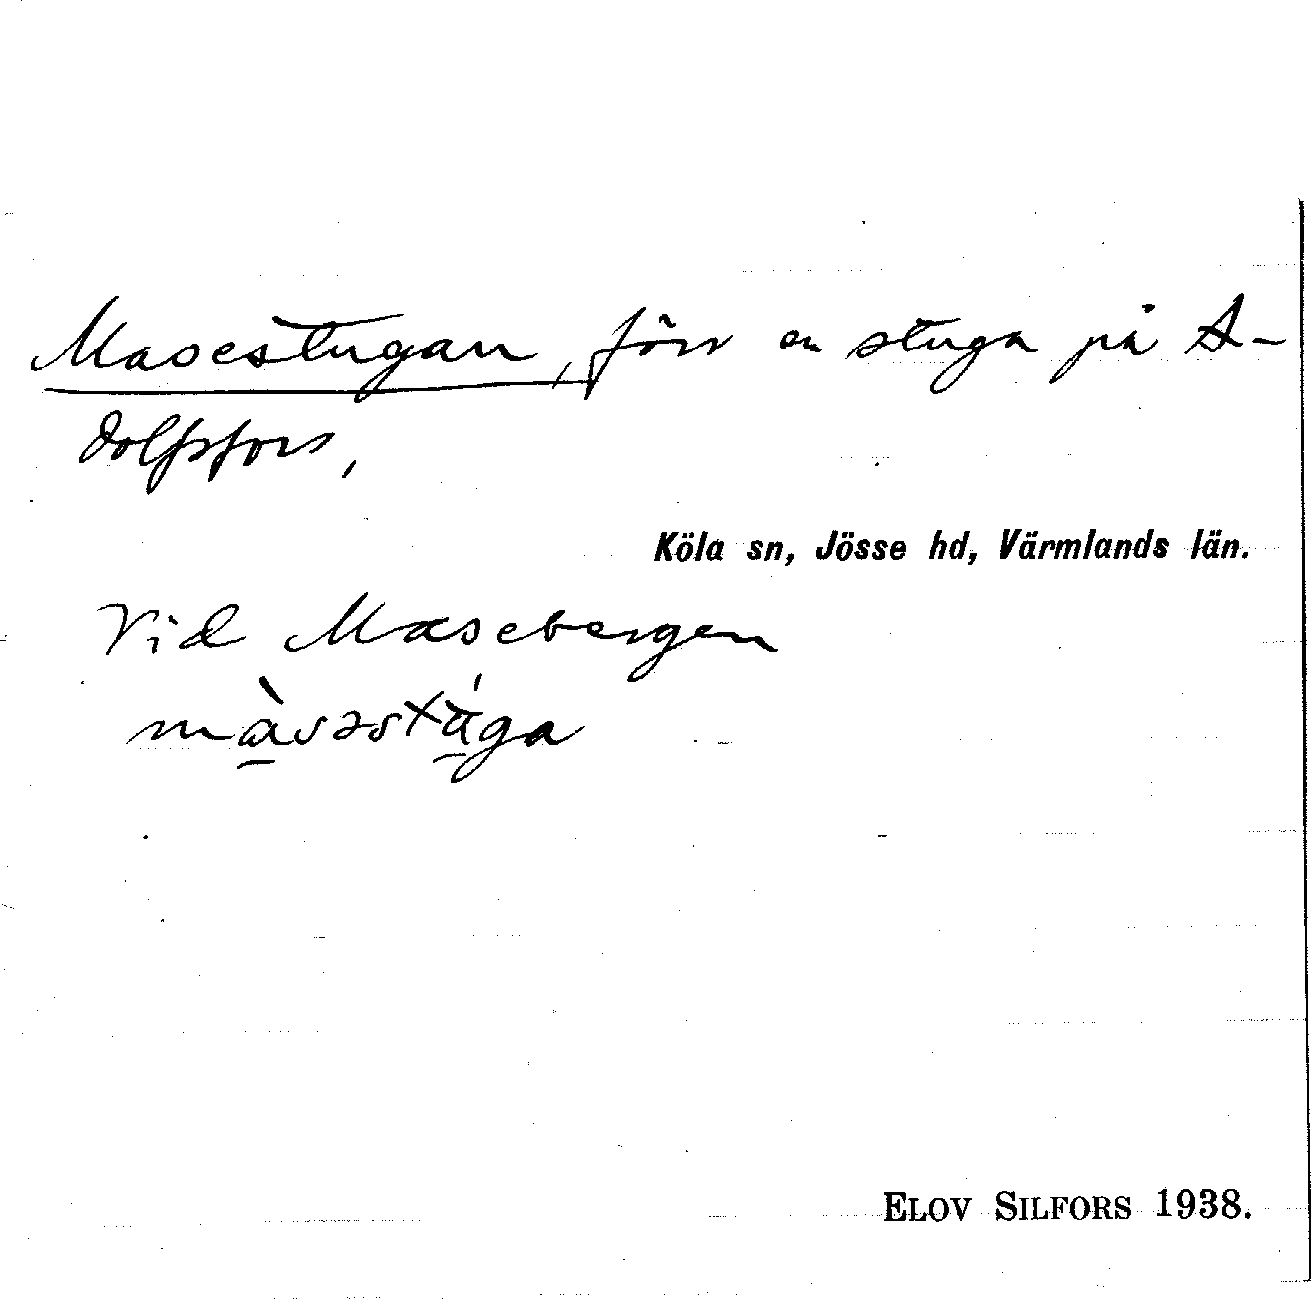 Masestugan, förr en stuga på A-
dolfsfors,
Köla sn, Jösse hd, Värmlands län.
Vid Masebergen
ELOV SILFORS 1938.